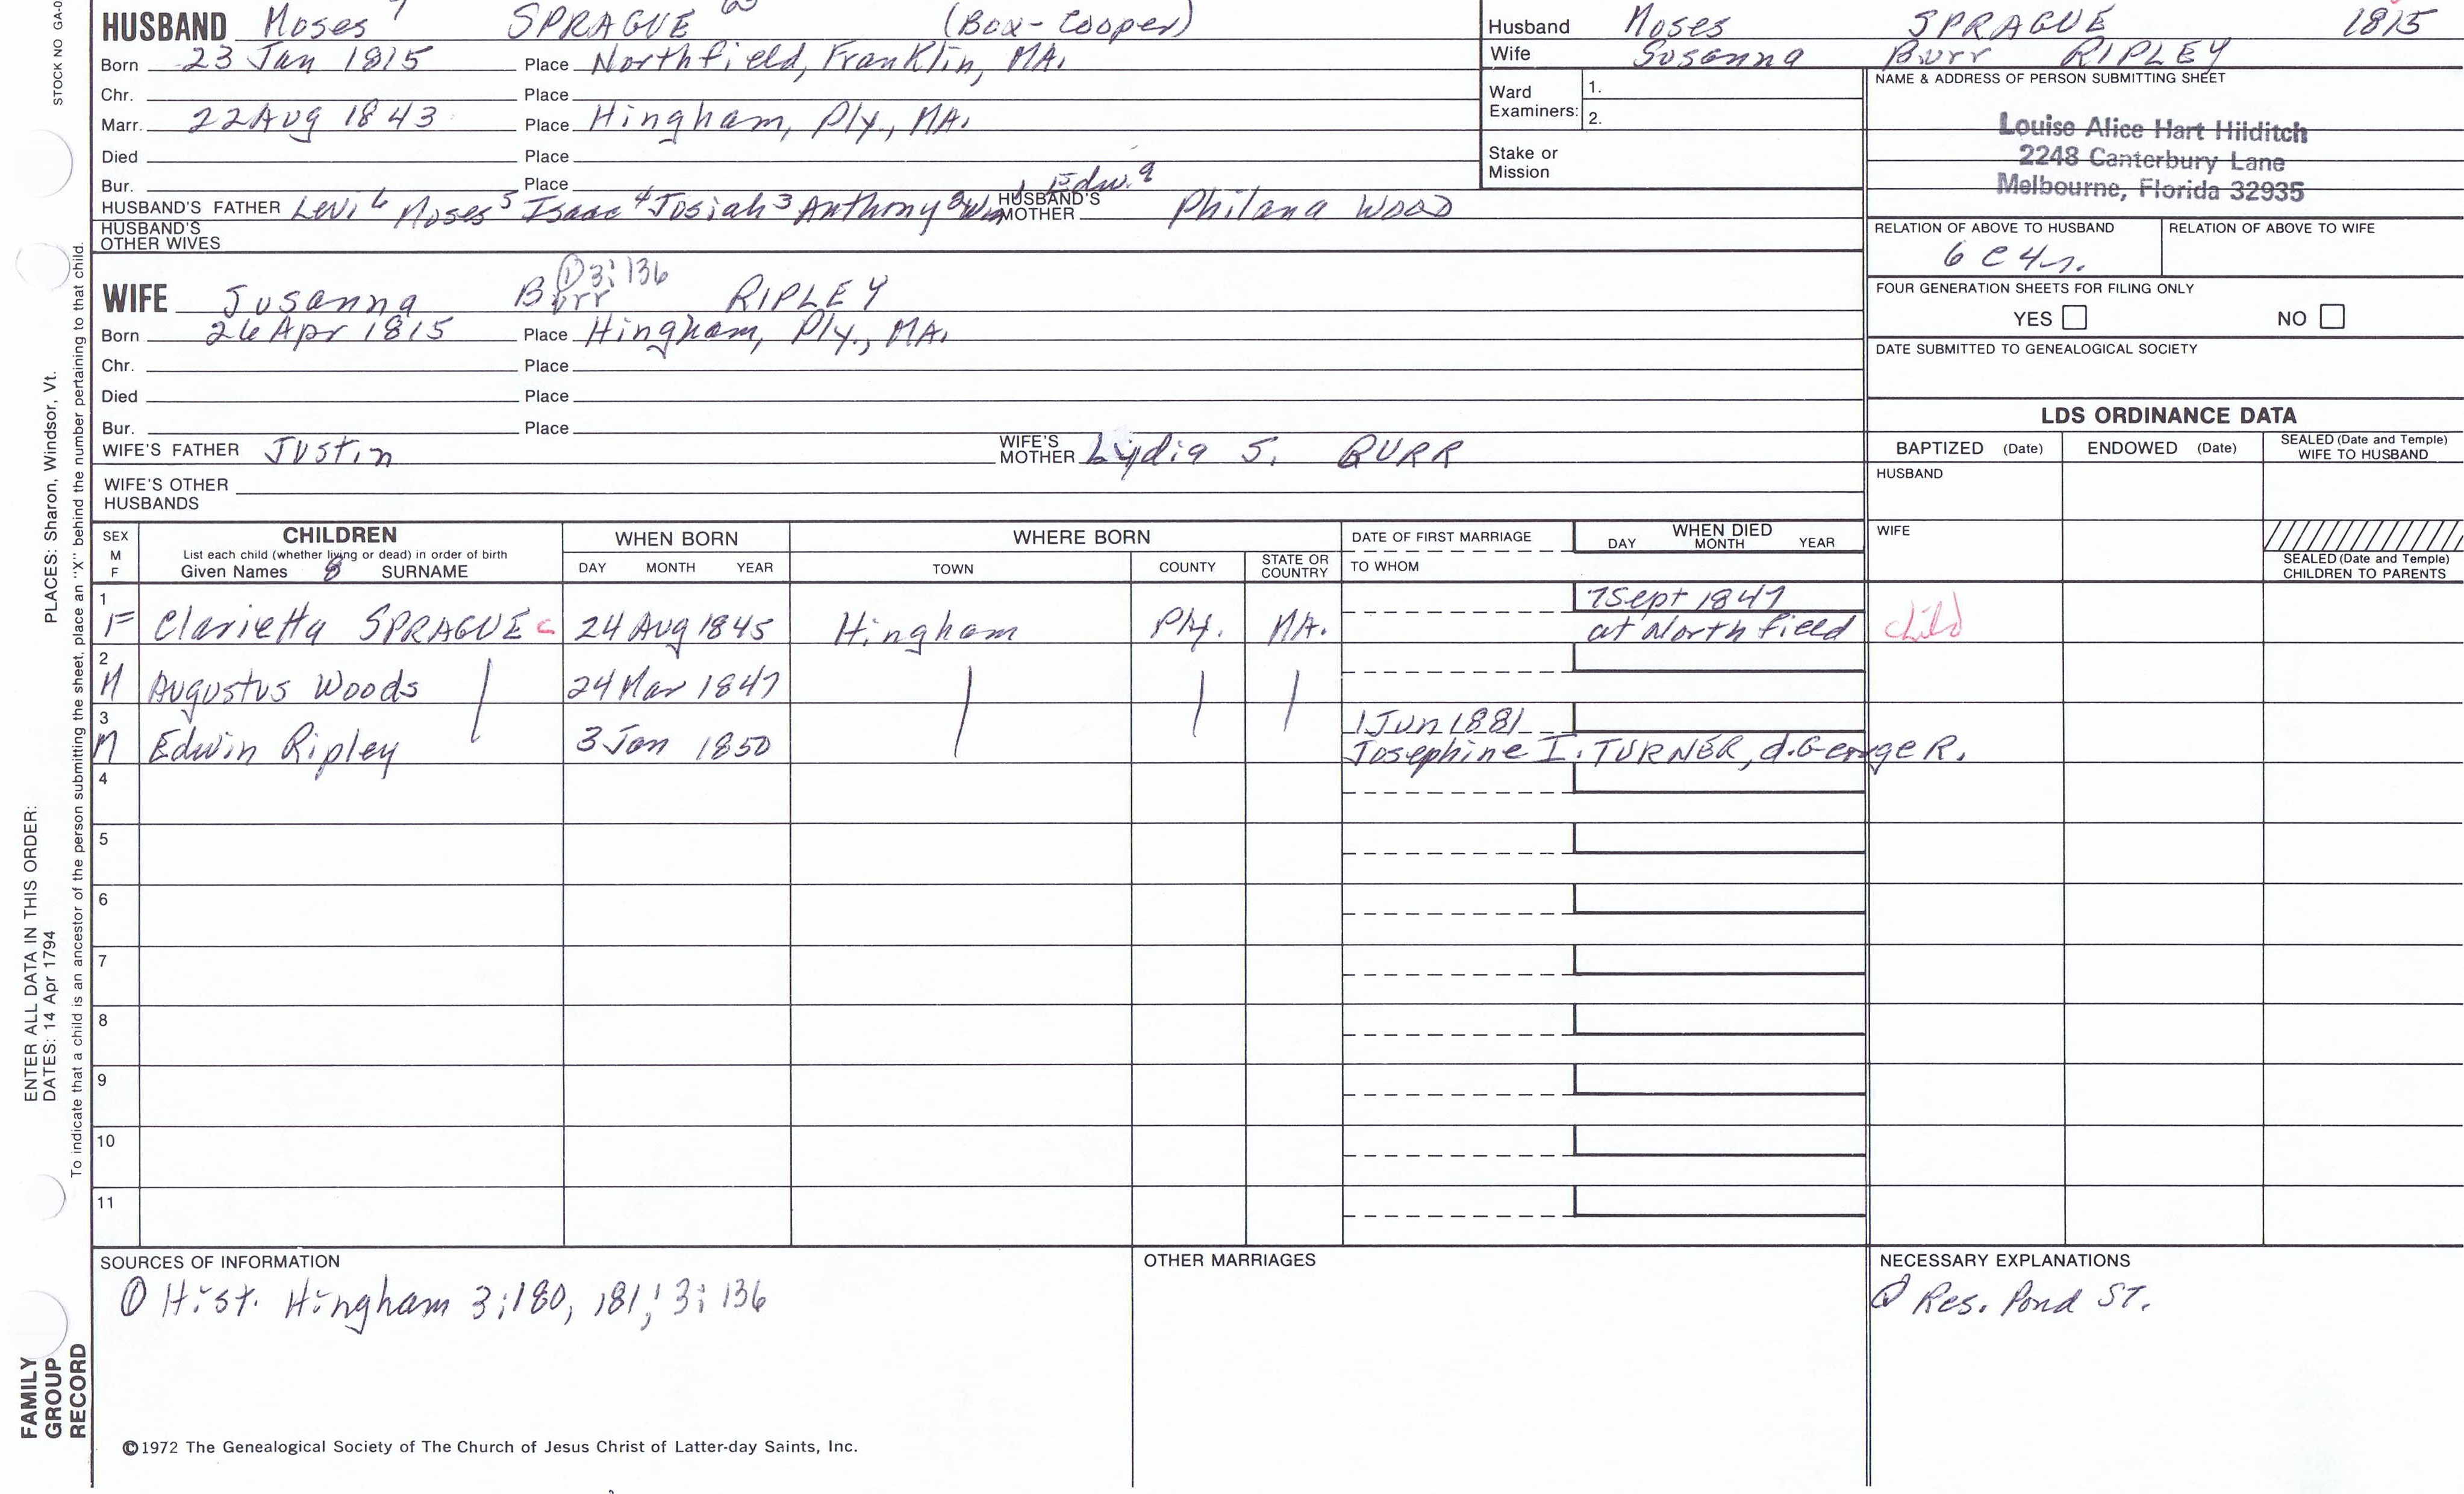 HUSBAND Moses 7 SPRAGUE (Box-Cooper)
Born 23 Jan 1815 Place Northfield, Franklin, MA.
Chr. Place
Marr. 22 Aug 1843 Place Hingham, Ply., MA.
Died Place
Bur. Place
HUSBAND'S FATHER Levi 6 Moses 5 Isaac 4 Josiah 3 Anthony 2 Wm 1 Edw. 9 HUSBAND'S MOTHER Philana WOOD
HUSBAND'S OTHER WIVES
① 3:136
WIFE Susanna Burr RIPLEY
Born 26 Apr 1815 Place Hingham, Ply., MA.
Chr. Place
Died Place
Bur. Place
WIFE'S FATHER Justin WIFE'S MOTHER Lydia S. BURR
WIFE'S OTHER HUSBANDS
Husband Moses SPRAGUE 1815
Wife Susanna Burr RIPLEY
Ward Examiners: 1.
2.
Stake or Mission
NAME & ADDRESS OF PERSON SUBMITTING SHEET
Louise Alice Hart Hilditch
2248 Canterbury Lane
Melbourne, Florida 32935
RELATION OF ABOVE TO HUSBAND RELATION OF ABOVE TO WIFE
6 C 4 r.
FOUR GENERATION SHEETS FOR FILING ONLY
YES NO
DATE SUBMITTED TO GENEALOGICAL SOCIETY
LDS ORDINANCE DATA
BAPTIZED (Date) ENDOWED (Date) SEALED (Date and Temple) WIFE TO HUSBAND
HUSBAND
WIFE
SEALED (Date and Temple) CHILDREN TO PARENTS
SEX M F CHILDREN WHEN BORN WHERE BORN DATE OF FIRST MARRIAGE WHEN DIED
List each child (whether living or dead) in order of birth
Given Names SURNAME DAY MONTH YEAR TOWN COUNTY STATE OR COUNTRY TO WHOM DAY MONTH YEAR
1 7 Sept 1847
F Clarietta SPRAGUE c 24 Aug 1845 Hingham Ply. MA. at Northfield child
2
M Augustus Woods 24 Mar 1847
3 1 Jun 1881
M Edwin Ripley 3 Jan 1850 Josephine I. TURNER, d. George R.
4
5
6
7
8
9
10
11
SOURCES OF INFORMATION
① Hist. Hingham 3:180, 181; 3:136
OTHER MARRIAGES
NECESSARY EXPLANATIONS
① Res. Pond St.
©1972 The Genealogical Society of The Church of Jesus Christ of Latter-day Saints, Inc.
STOCK NO GA-0
PLACES: Sharon, Windsor, Vt.
ENTER ALL DATA IN THIS ORDER:
DATES: 14 Apr 1794
To indicate that a child is an ancestor of the person submitting the sheet, place an "X" behind the number pertaining to that child.
FAMILY
GROUP
RECORD